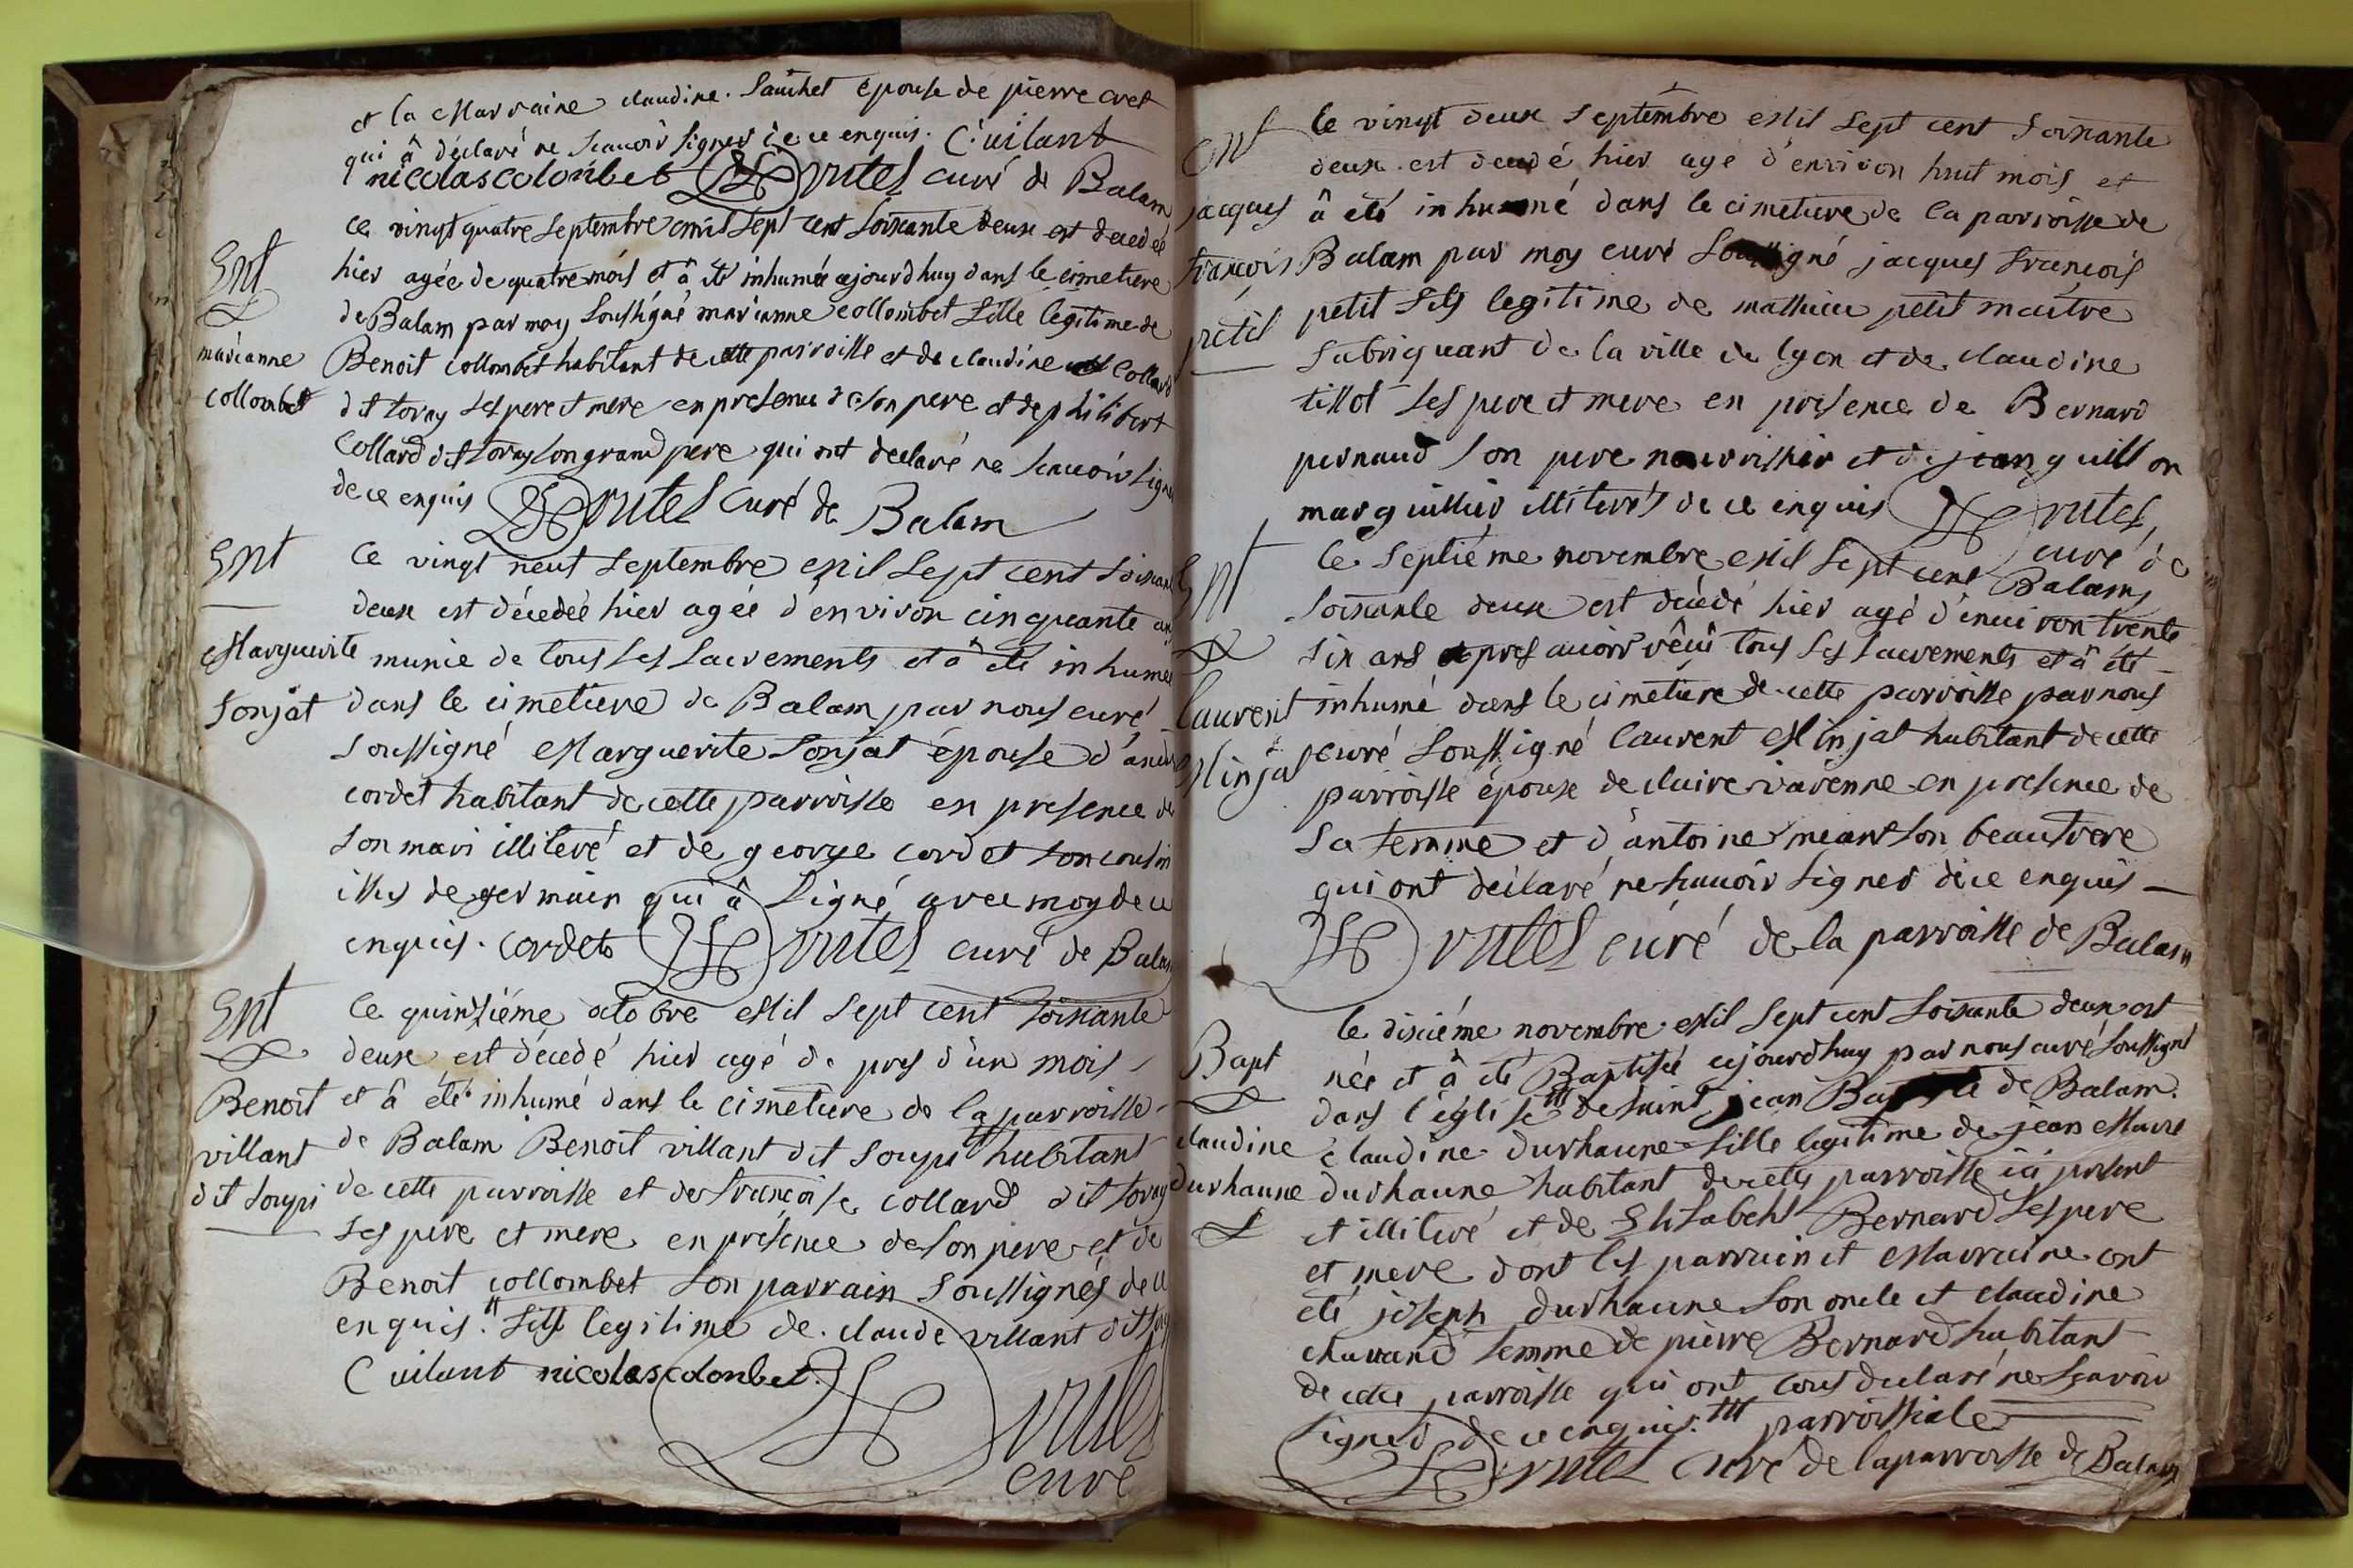 et la Marraine claudine. Sauchet épouse de pierre cret
qui â déclaré ne scauoir signer de ce enquis. C. uilant
nicolas colonbet Drutel curé de Balam
Ent
marianne
collombet
ce vingt quatre septembre mil sept cent soixante deux est decedée
hier agée de quatre mois et â eté inhumée ajourdhuy dans le cimetiere
de Balam par moy soussigné marianne collombet fille legitime de
Benoit collombet habitant de cette parroisse et de claudine collard
dit toray ses pere et mere en presence de son pere et de philibert
Collard dit toray son grand pere qui ont declaré ne scauoir signer
de ce enquis Drutel curé de Balam
Ent
Marguerite
Sonjat
Ce vingt neuf septembre mil sept cent soixante
deux est décedeé hier agée d'environ cinquante ans
munie de tous ses sacrements et â été inhumée
dans le cimetiere de Balam par nous curé
soussigné Marguerite Sonjat épouse d'andré
cordet habitant de cette parroisse en presence de
son mari illiteré et de george cordet son cousin
issus de germain qui â signé avec moy de ce
enquis. cordet Drutel curé de Balam
Ent
Benoit
villant
dit soupi
Ce quinziéme octobre Mil sept cent soixante
deux est décedé hier agé de pres d'un mois
et â été inhumé dans le cimetiere de la parroisse
de Balam Benoit villant dit soupi # habitant
de cette parroisse et de françoise collard dit toray
ses pere et mere en présence de son pere et de
Benoit collombet son parrain soussignés de ce
enquis. # fils legitime de claude villant dit
C uilant nicolas colonbet.
Drutel
curé
Ent
jacques
françois
petit
le vingt deux septembre Mil sept cent soixante
deux est decedé hier agé d'environ huit mois et
â eté inhumé dans le cimetiere de la parroisse de
Balam par moy curé soussigné jacques françois
petit fils legitime de mathieu petit maitre
fabriquant de la ville de lyon et de claudine
tillot ses pere et mere en présence de Bernard
pernaud son pere nourrissier et de jean guillon
marguillier illiterés de ce enquis Drutel,
curé de
Balam,
Ent
laurent
Minjat
le septiéme novembre Mil sept cent
soixante deux est decedé hier agé d'enuiron trente
six ans apres auoir reçû tous ses sacrements et â été
inhumé dans le cimetiere de cette parroisse par nous
curé soussigné laurent Minjat habitant de cette
parroisse épouse de claire varenne en presence de
sa femme et d'antoine meant son beaufrere
qui ont déclaré ne scauoir signer de ce enquis
Drutel curé de la parroisse de Balam
Bapt
claudine
durhaune
le dixiéme novembre Mil sept cent soixante deux est
née et â été Baptisée ajourdhuy par nous curé soussigné
dans l'église # de saint jean Baptiste de Balam
claudine durhaune fille legitime de jean Marie
durhaune habitant de cette parroisse ici present
et illiteré et de Elisabeht Bernard ses pere
et mere dont les parrain et Marraine ont
été joseph durhaune son oncle et claudine
chavand femme de pierre Bernard habitant
de cette parroisse qui ont tous declaré ne sçavoir
signer de ce enquis. # parroissiale
Drutel curé de la parroisse de Balam